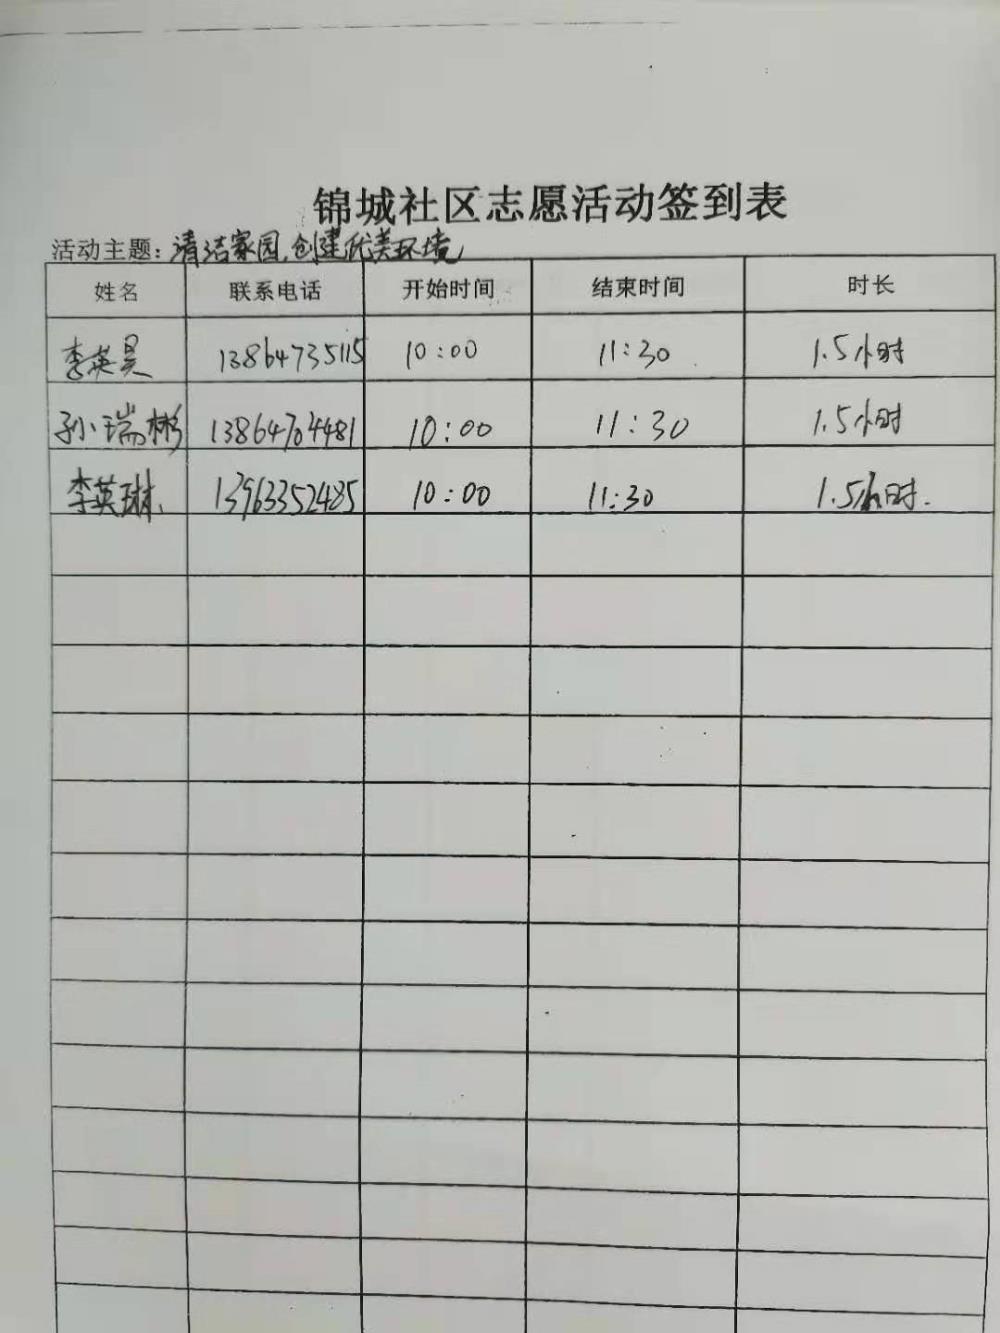 锦城社区志愿活动签到表
活动主题：清洁家园,创建优美环境
姓名 联系电话 开始时间 结束时间 时长
李英昊 13864735115 10:00 11:30 1.5小时
孙瑞彬 13864704481 10:00 11:30 1.5小时
李英琳. 13963352485 10:00 11:30 1.5小时.